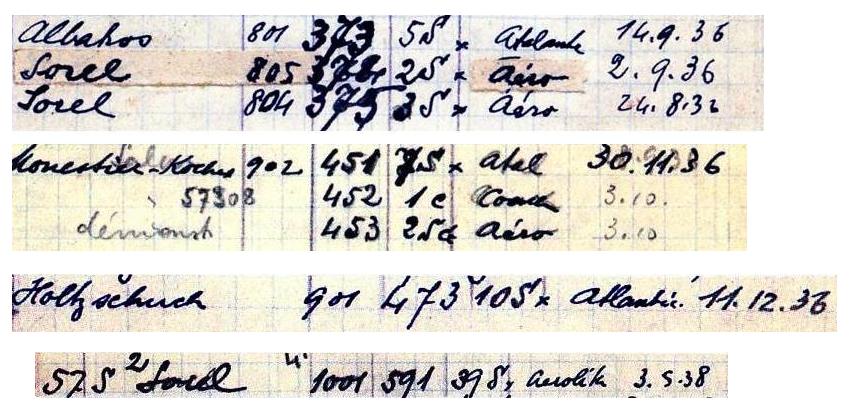 Albatros 801 373 5S x Atalante 14.9.36
Sorel 805 2S x Aéro 2.9.36
Sorel 804 375 3S x Aéro 24.8.36
Monestier-Kocher 902 451 7S x Atal 30.11.36
57308 452 1c Coach 3.10.
démonst 453 2Sc Aéro 3.10
Holtzschuch 901 473 10S x Atlantic. 11.12.36
57S 2 Sorel 4. 1001 591 39S x aerolik 3.5.38